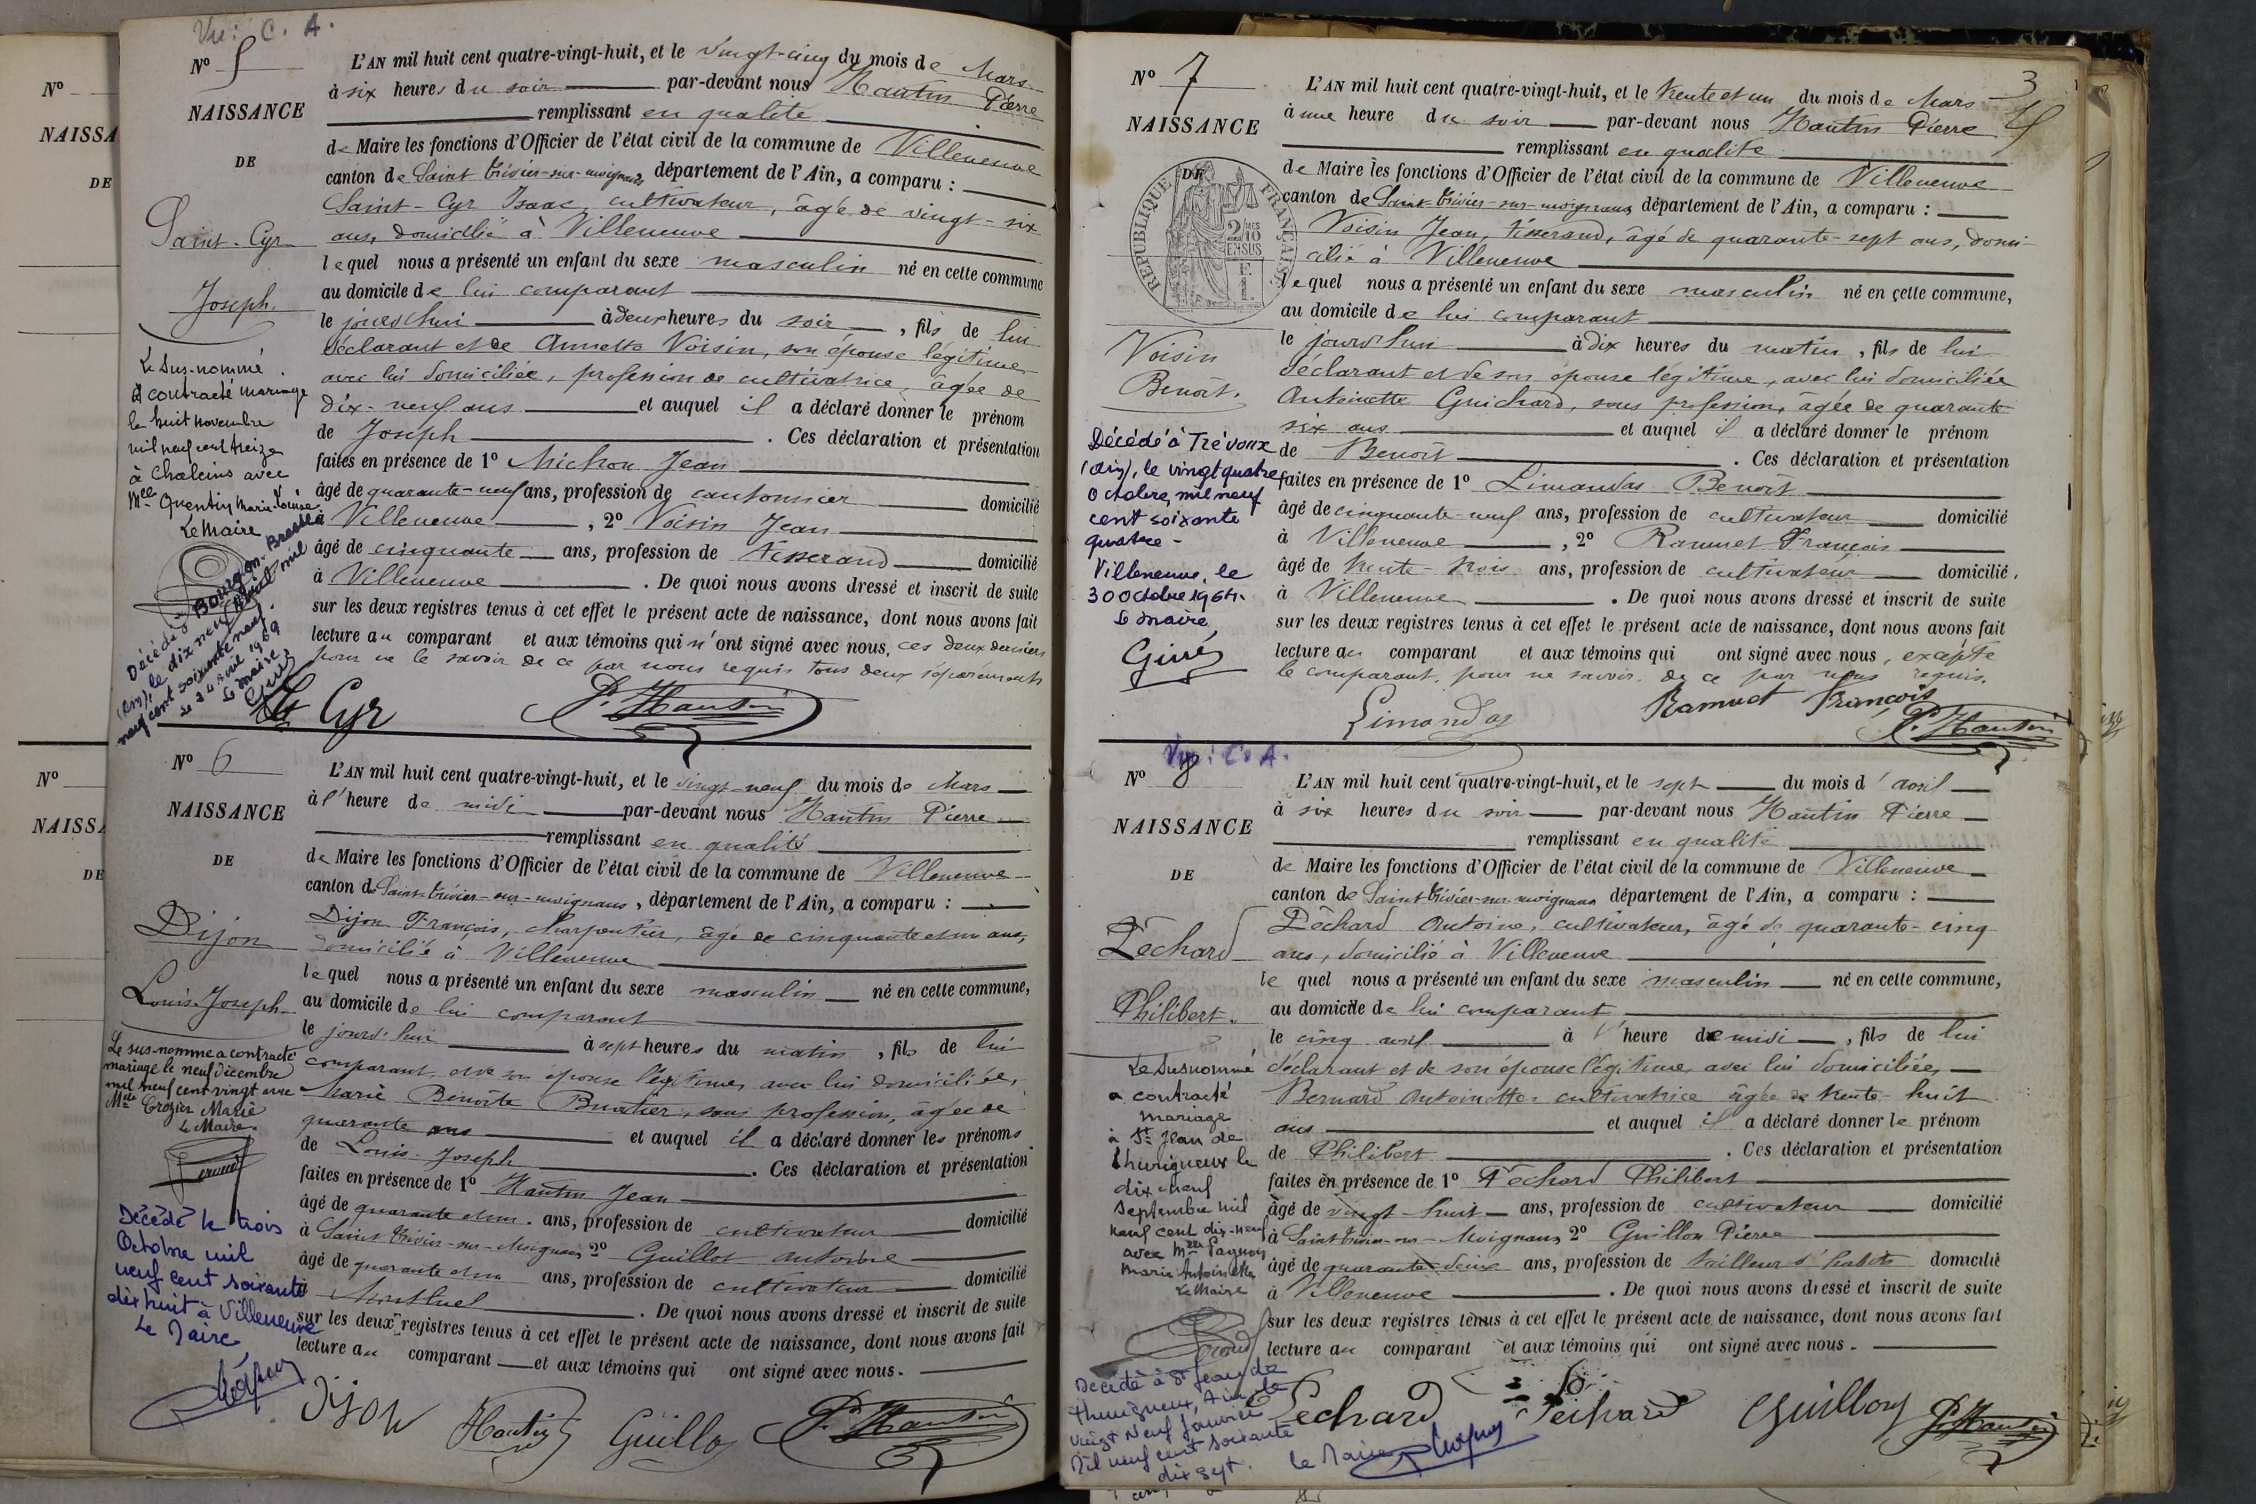 Vu : C. A.
N° 5
NAISSANCE
DE
Saint-Cyr
Joseph.
L'AN mil huit cent quatre-vingt-huit, et le vingt-cinq du mois de Mars
à six heures du soir par-devant nous Hautin Pierre
remplissant en qualité
de Maire les fonctions d'Officier de l'état civil de la commune de Villeneuve
canton de Saint Trivier-sur-moignans département de l'Ain, a comparu :
Saint-Cyr Isaac, cultivateur, âgé de vingt-six
ans, domicilié à Villeneuve
lequel nous a présenté un enfant du sexe masculin né en cette commune
au domicile de lui comparant
le jourd'hui à deux heures du soir, fils de lui
déclarant et de Annette Voisin, son épouse légitime
avec lui domiciliée, profession de cultivatrice, âgée de
dix-neuf ans et auquel il a déclaré donner le prénom
de Joseph. Ces déclaration et présentation
faites en présence de 1° Michon Jean
âgé de quarante-neuf ans, profession de cantonnier domicilié
à Villeneuve, 2° Voisin Jean
âgé de cinquante ans, profession de tisserand domicilié
à Villeneuve. De quoi nous avons dressé et inscrit de suite
sur les deux registres tenus à cet effet le présent acte de naissance, dont nous avons fait
lecture au comparant et aux témoins qui n'ont signé avec nous, ces deux derniers
pour ne le savoir de ce par nous requis tous deux séparément
Le sus-nommé
a contracté mariage
le huit novembre
mil neuf cent treize
à Chaleins avec
Mlle Quentin Marie-Louise
Le Maire
Décédé à Bourg-en-Bresse
(Ain), le dix neuf avril mil
neuf cent soixante neuf.
Le 24 avril 1969
Le Maire,
St Cyr
P. Hautin
N° 6
NAISSANCE
DE
Dijon
Louis-Joseph
L'AN mil huit cent quatre-vingt-huit, et le vingt-neuf du mois de Mars
à l'heure de midi par-devant nous Hautin Pierre
remplissant en qualité
de Maire les fonctions d'Officier de l'état civil de la commune de Villeneuve
canton de Saint-Trivier-sur-moignans, département de l'Ain, a comparu :
Dijon François, charpentier, âgé de cinquante et un ans,
domicilié à Villeneuve
lequel nous a présenté un enfant du sexe masculin né en cette commune,
au domicile de lui comparant
le jourd'hui à sept heures du matin, fils de lui
comparant et de son épouse légitime, avec lui domiciliée,
Marie Benoîte Buatier, sans profession, âgée de
quarante ans et auquel il a déclaré donner les prénoms
de Louis-Joseph. Ces déclaration et présentation
faites en présence de 1° Hautin Jean
âgé de quarante et un ans, profession de cultivateur domicilié
à Saint Trivier-sur-Moignans 2° Guillot antoine
âgé de quarante et un ans, profession de cultivateur domicilié
à Montluel. De quoi nous avons dressé et inscrit de suite
sur les deux registres tenus à cet effet le présent acte de naissance, dont nous avons fait
lecture au comparant et aux témoins qui ont signé avec nous.
Le sus-nommé a contracté
mariage le neuf décembre
mil neuf cent vingt avec
Mlle Crozier Marie
Le Maire
Décédé le trois
Octobre mil
neuf cent soixante
dix huit à Villeneuve
Le Maire,
Dijon
Hautin
Guillot
P. Hautin
3
N° 7
NAISSANCE
DE
RÉPUBLIQUE FRANÇAISE
2/10
EN SUS
Voisin
Benoît.
L'AN mil huit cent quatre-vingt-huit, et le trente et un du mois de Mars
à une heure du soir par-devant nous Hautin Pierre
remplissant en qualité
de Maire les fonctions d'Officier de l'état civil de la commune de Villeneuve
canton de Saint-Trivier-sur-moignans département de l'Ain, a comparu :
Voisin Jean, tisserand, âgé de quarante-sept ans, domi-
cilié à Villeneuve
lequel nous a présenté un enfant du sexe masculin né en cette commune,
au domicile de lui comparant
le jourd'hui à dix heures du matin, fils de lui
déclarant et de son épouse légitime, avec lui domiciliée
Antoinette Guichard, sans profession, âgée de quarante
six ans et auquel il a déclaré donner le prénom
de Benoît. Ces déclaration et présentation
faites en présence de 1° Limandas Benoît
âgé de cinquante-neuf ans, profession de cultivateur domicilié
à Villeneuve, 2° Ramuet François
âgé de trente-trois ans, profession de cultivateur domicilié,
à Villeneuve. De quoi nous avons dressé et inscrit de suite
sur les deux registres tenus à cet effet le présent acte de naissance, dont nous avons fait
lecture au comparant et aux témoins qui ont signé avec nous, excepté
le comparant, pour ne savoir de ce par nous requis.
Décédé à Trévoux
(Ain), le vingt quatre
Octobre, mil neuf
cent soixante
quatre -
Villeneuve, le
30 Octobre 1964.
Le Maire,
Limandas
Ramuet François
P. Hautin
Vu : C. A.
N° 8
NAISSANCE
DE
Péchard
Philibert.
L'AN mil huit cent quatre-vingt-huit, et le sept du mois d'avril
à six heures du soir par-devant nous Hautin Pierre
remplissant en qualité
de Maire les fonctions d'Officier de l'état civil de la commune de Villeneuve
canton de Saint-Trivier-sur-moignans département de l'Ain, a comparu :
Péchard Antoine, cultivateur, âgé de quarante-cinq
ans, domicilié à Villeneuve
lequel nous a présenté un enfant du sexe masculin né en cette commune,
au domicile de lui comparant
le cinq avril à l'heure de midi, fils de lui
déclarant et de son épouse légitime avec lui domiciliée,
Bernard Antoinette cultivatrice âgée de trente-huit
ans et auquel il a déclaré donner le prénom
de Philibert. Ces déclaration et présentation
faites en présence de 1° Péchard Philibert
âgé de vingt-huit ans, profession de cultivateur domicilié
à Saint Trivier-sur-Moignans 2° Guillon Pierre
âgé de quarante ans, profession de tailleur d'habits domicilié
à Villeneuve. De quoi nous avons dressé et inscrit de suite
sur les deux registres tenus à cet effet le présent acte de naissance, dont nous avons fait
lecture au comparant et aux témoins qui ont signé avec nous.
Le susnommé
a contracté
mariage
à St Jean de
Thurigneux le
dix neuf
Septembre mil
neuf cent dix-neuf
avec Mlle Pagnon
Marie Antoinette
Le Maire
Décédé à St Jean de
Thurigneux, Ain, le
vingt neuf Janvier
Mil neuf cent soixante
dix sept.
Le Maire
Pechard
Pechard
Guillon
P. Hautin
N°
NAISSA
DE
N°
NAISSA
DE